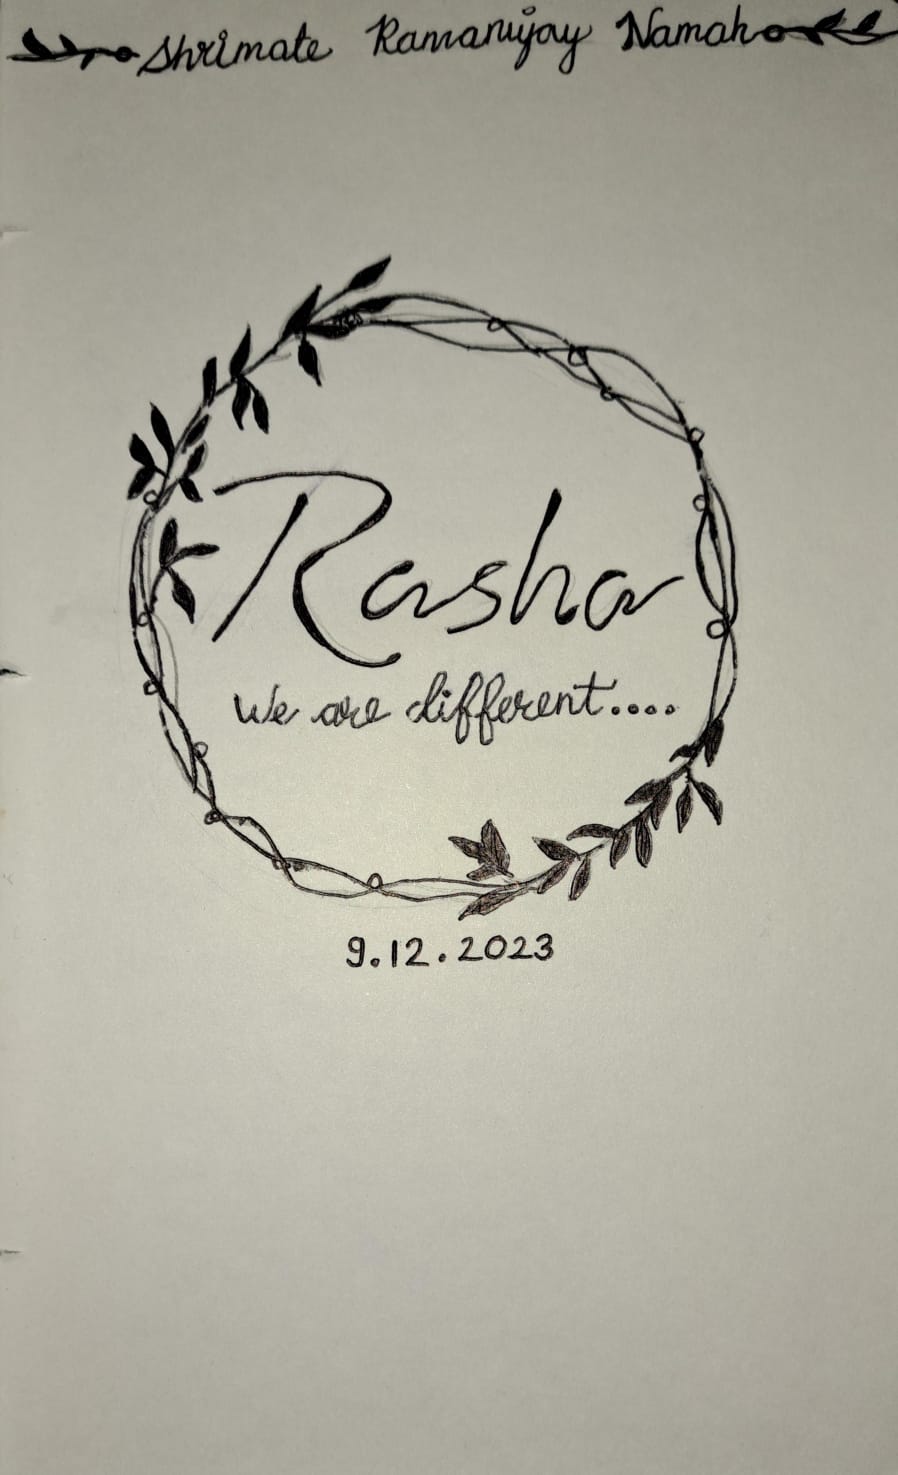 Shrimate Ramanujay Namah
Rasha
We are different....
9.12.2023